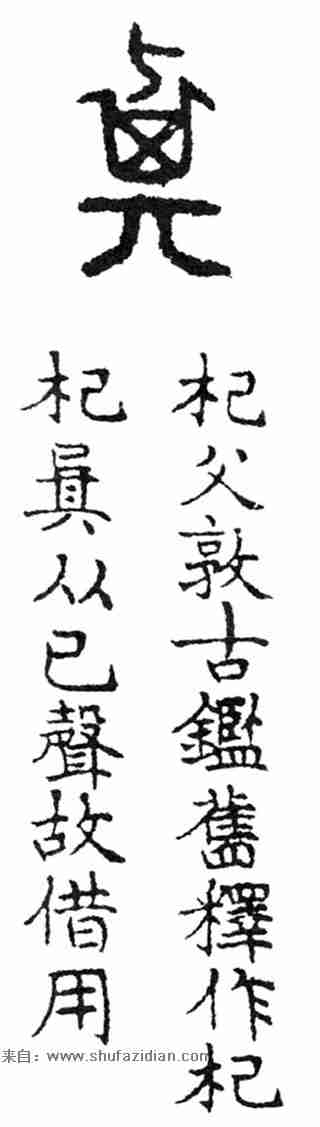 杞父敦古鑑舊釋作杞
杞㠱从己聲故借用
来自：www.shufazidian.com